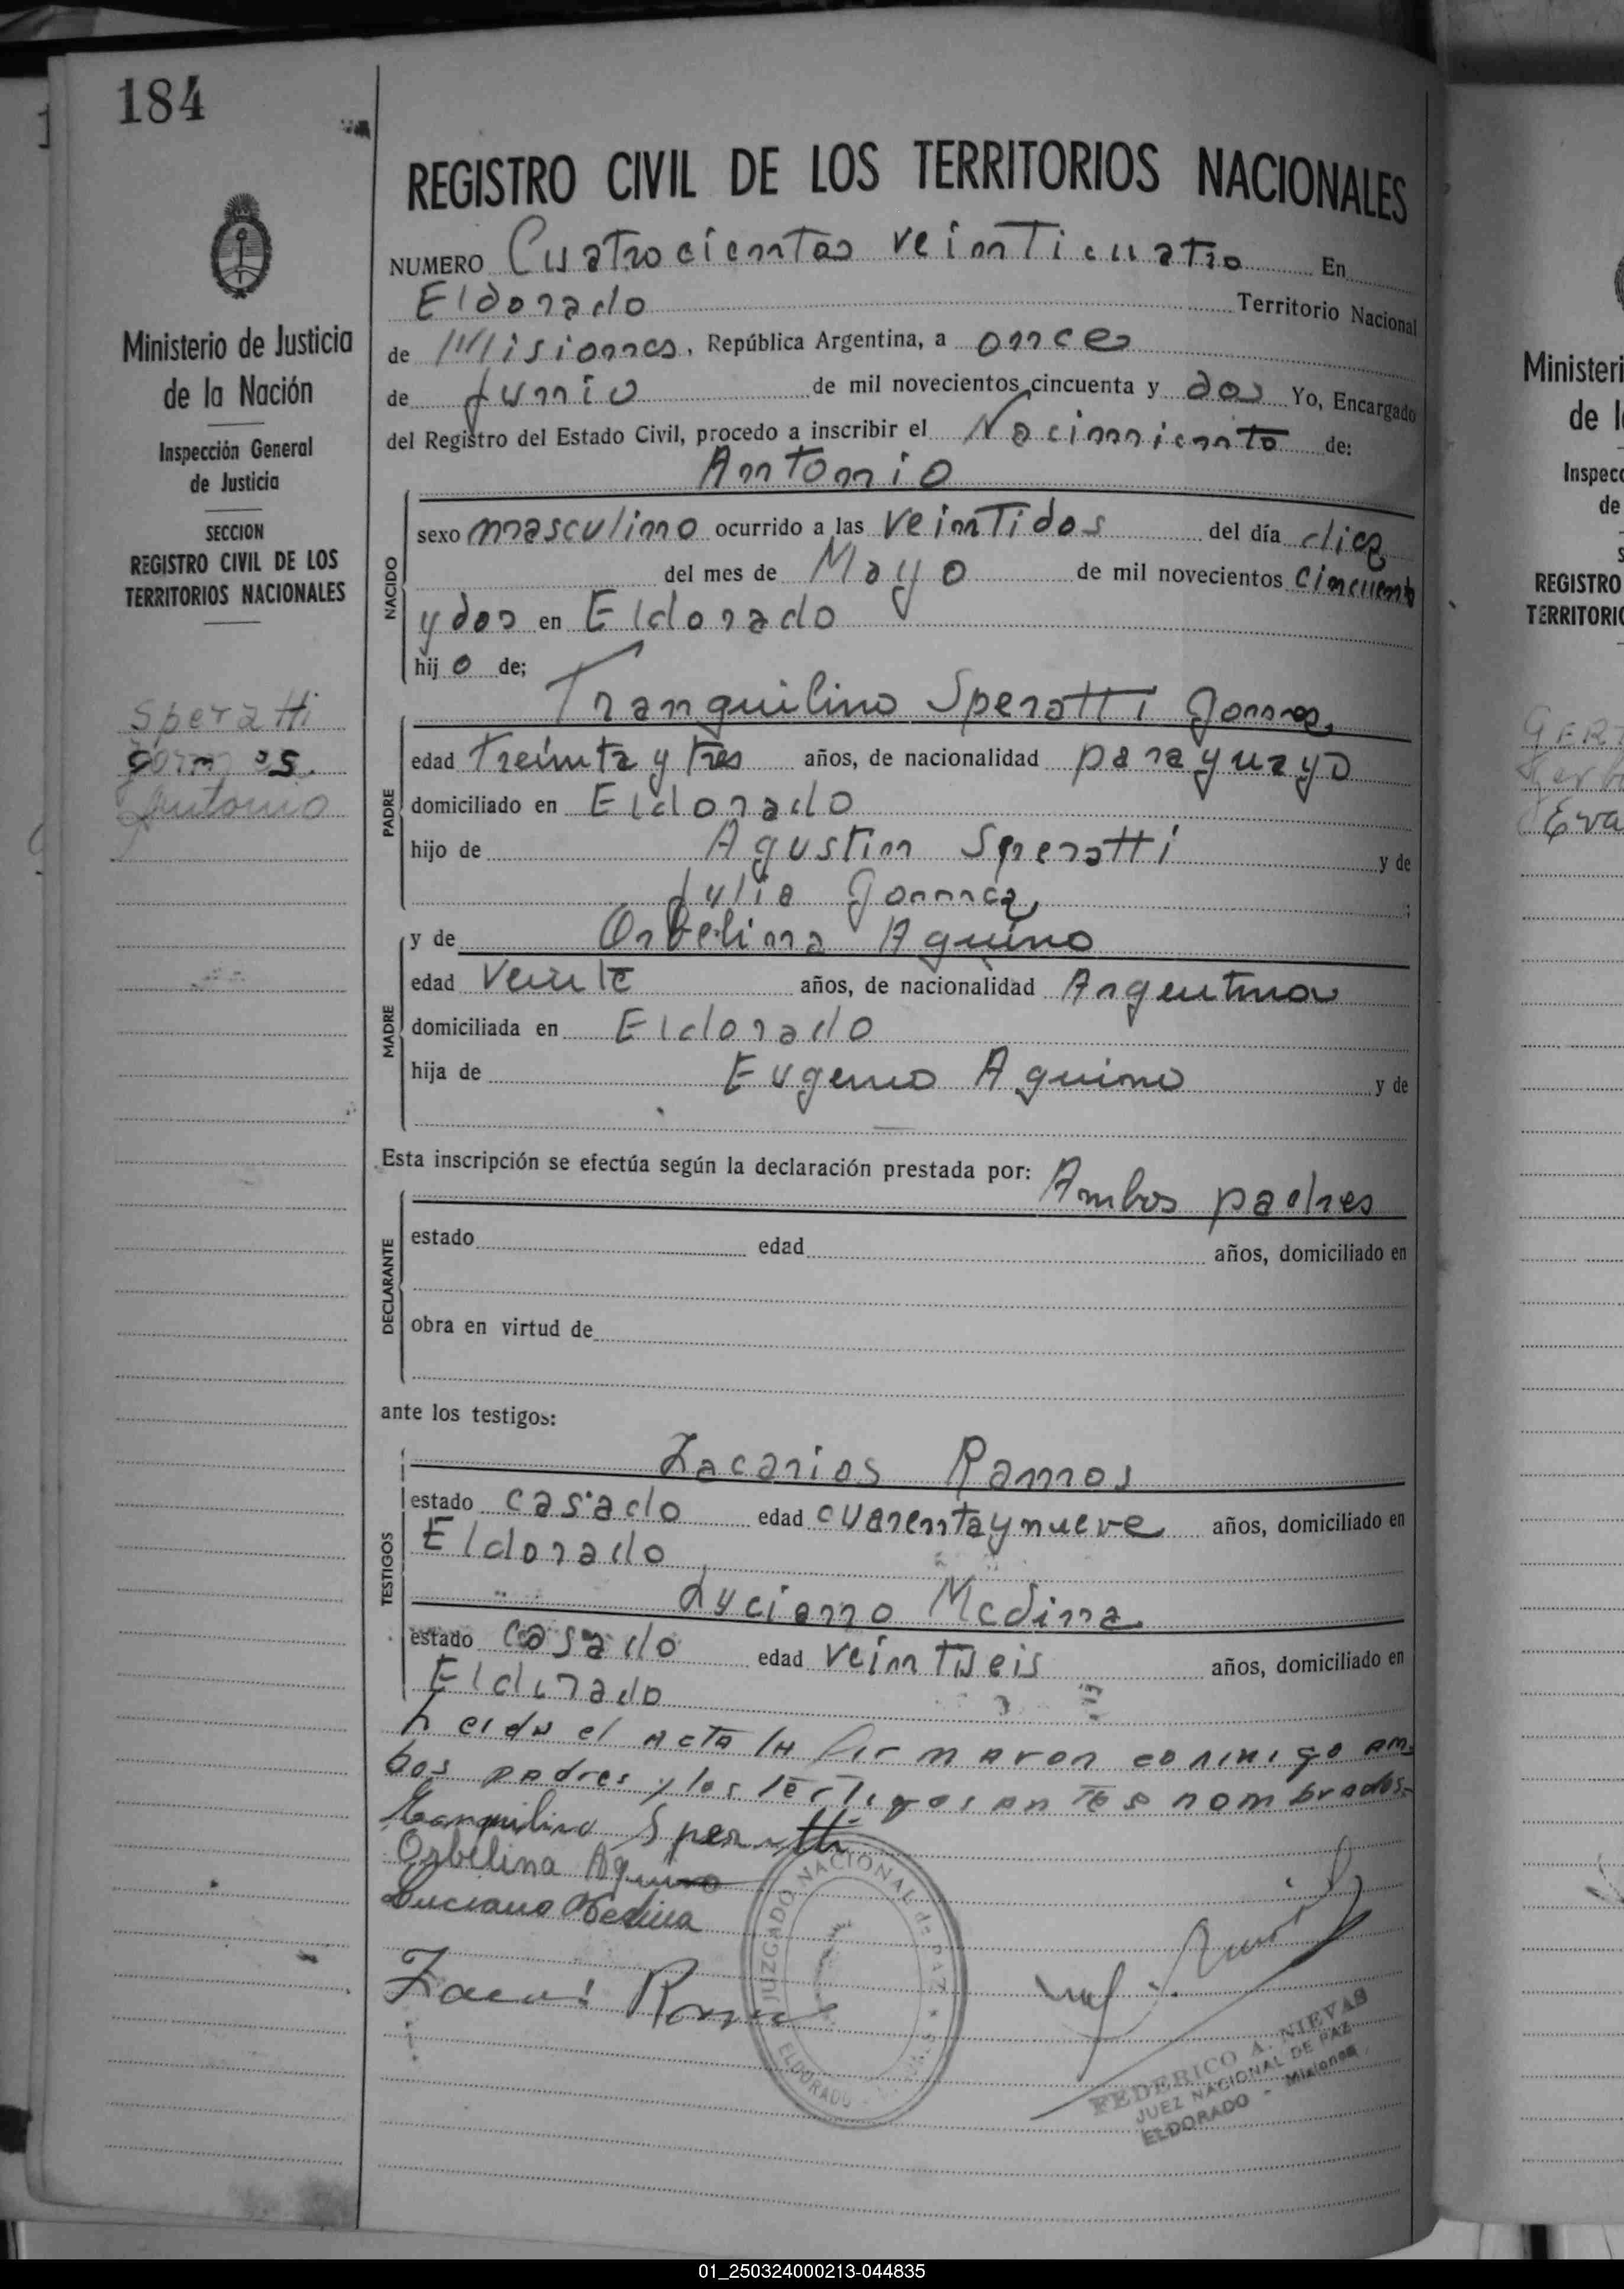 184
REGISTRO CIVIL DE LOS TERRITORIOS NACIONALES
NUMERO Cuatrocientos veinticuatro En
Eldorado Territorio Nacional
de Misiones, República Argentina, a once
de Junio de mil novecientos cincuenta y dos Yo, Encargado
del Registro del Estado Civil, procedo a inscribir el Nacimiento de:
Antonio
NACIDO
sexo masculino ocurrido a las veintidos del día diez
del mes de Mayo de mil novecientos cincuenta
y dos en Eldorado
hijo de;
Tranquilino Speratti
PADRE
edad treinta y tres años, de nacionalidad parayuayo
domiciliado en Eldorado
hijo de Agustin Speratti y de
Julia
MADRE
y de Orbelina Aquino
edad veinte años, de nacionalidad Argentina
domiciliada en Eldorado
hija de Eugenio Aquino y de
Esta inscripción se efectúa según la declaración prestada por: Ambos padres
DECLARANTE
estado edad años, domiciliado en
obra en virtud de
ante los testigos:
TESTIGOS
Zacarias Ramos
estado casado edad cuarenta y nueve años, domiciliado en
Eldorado
Luciano Medina
estado casado edad veintiseis años, domiciliado en
Eldorado
Leida el acta la firmaron conmigo am-
bos padres y los testigos antes nombrados-
Tranquilino Speratti
Orbelina Aquino
Luciano Medina
JUZGADO NACIONAL de PAZ
ELDORADO
FEDERICO A. NIEVAS
JUEZ NACIONAL DE PAZ
ELDORADO - Misiones
Ministerio de Justicia
de la Nación
Inspección General
de Justicia
SECCION
REGISTRO CIVIL DE LOS
TERRITORIOS NACIONALES
Speratti
Antonio
Ministeri
de l
Inspecc
de
S
REGISTRO
TERRITORIO
GER
Eva
01_250324000213-044835